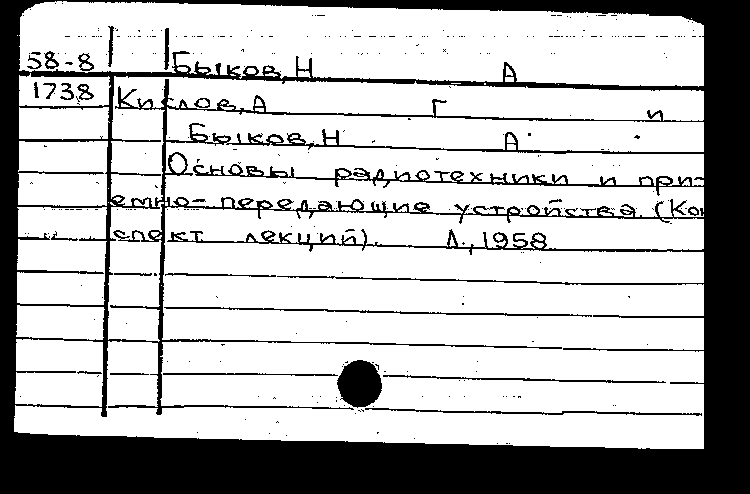 58-8 Быков, Н А
1738 Кислов, А Г и
Быков, Н А
Основы радиотехники и при-
емно-передающие устройства. (Кон
спект лекций). Л., 1958